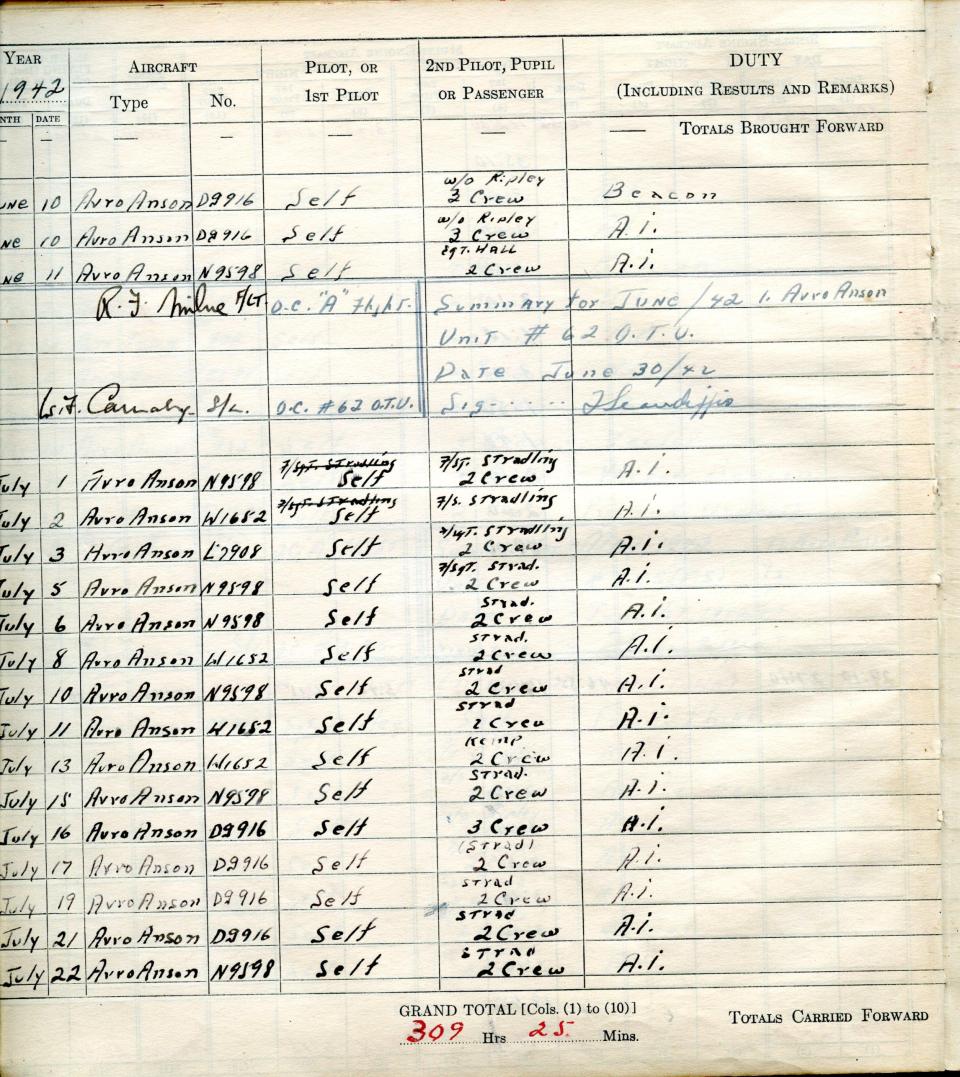 YEAR AIRCRAFT PILOT, OR 2ND PILOT, PUPIL DUTY
1942 Type No. 1ST PILOT OR PASSENGER (INCLUDING RESULTS AND REMARKS)
NTH DATE
— — — — — — TOTALS BROUGHT FORWARD
w/o Ripley
une 10 Avro Anson DG916 Self 3 Crew Beacon
w/o Ripley
ne 10 Avro Anson DG916 Self 3 Crew A.i.
Sgt. HALL
ne 11 Avro Anson N9598 Self 2 Crew A.i.
R. F. Milne F/LT. O.C. "A" Flight. Summary for JUNE/42 1. Avro Anson
Unit # 62 O.T.U.
Date June 30/42
Carnaby S/L. O.C. #62 O.T.U. Sig
F/Sgt. Stradling F/ST. Stradling
July 1 Avro Anson N9598 Self 2 Crew A.i.
F/Sgt. Stradling F/S. Stradling
July 2 Avro Anson W1652 Self A.i.
F/Sgt. Stradling
July 3 Avro Anson L7908 Self 2 Crew A.i.
F/Sgt. Strad.
July 5 Avro Anson N9598 Self 2 Crew A.i.
Strad.
July 6 Avro Anson N9598 Self 2 Crew A.i.
Strad.
July 8 Avro Anson W1652 Self 2 Crew A.i.
Strad
July 10 Avro Anson N9598 Self 2 Crew A.i.
Strad
July 11 Avro Anson W1652 Self 2 Crew A.i.
Kemp
July 13 Avro Anson W1652 Self 2 Crew A.i.
Strad.
July 15 Avro Anson N9598 Self 2 Crew A.i.
July 16 Avro Anson DG916 Self 3 Crew A.i.
(Strad)
July 17 Avro Anson DG916 Self 2 Crew A.i.
Strad
July 19 Avro Anson DG916 Self 2 Crew A.i.
Strad
July 21 Avro Anson DG916 Self 2 Crew A.i.
Strad
July 22 Avro Anson N9598 Self 2 Crew A.i.
GRAND TOTAL [Cols. (1) to (10)] TOTALS CARRIED FORWARD
309 Hrs 25 Mins.